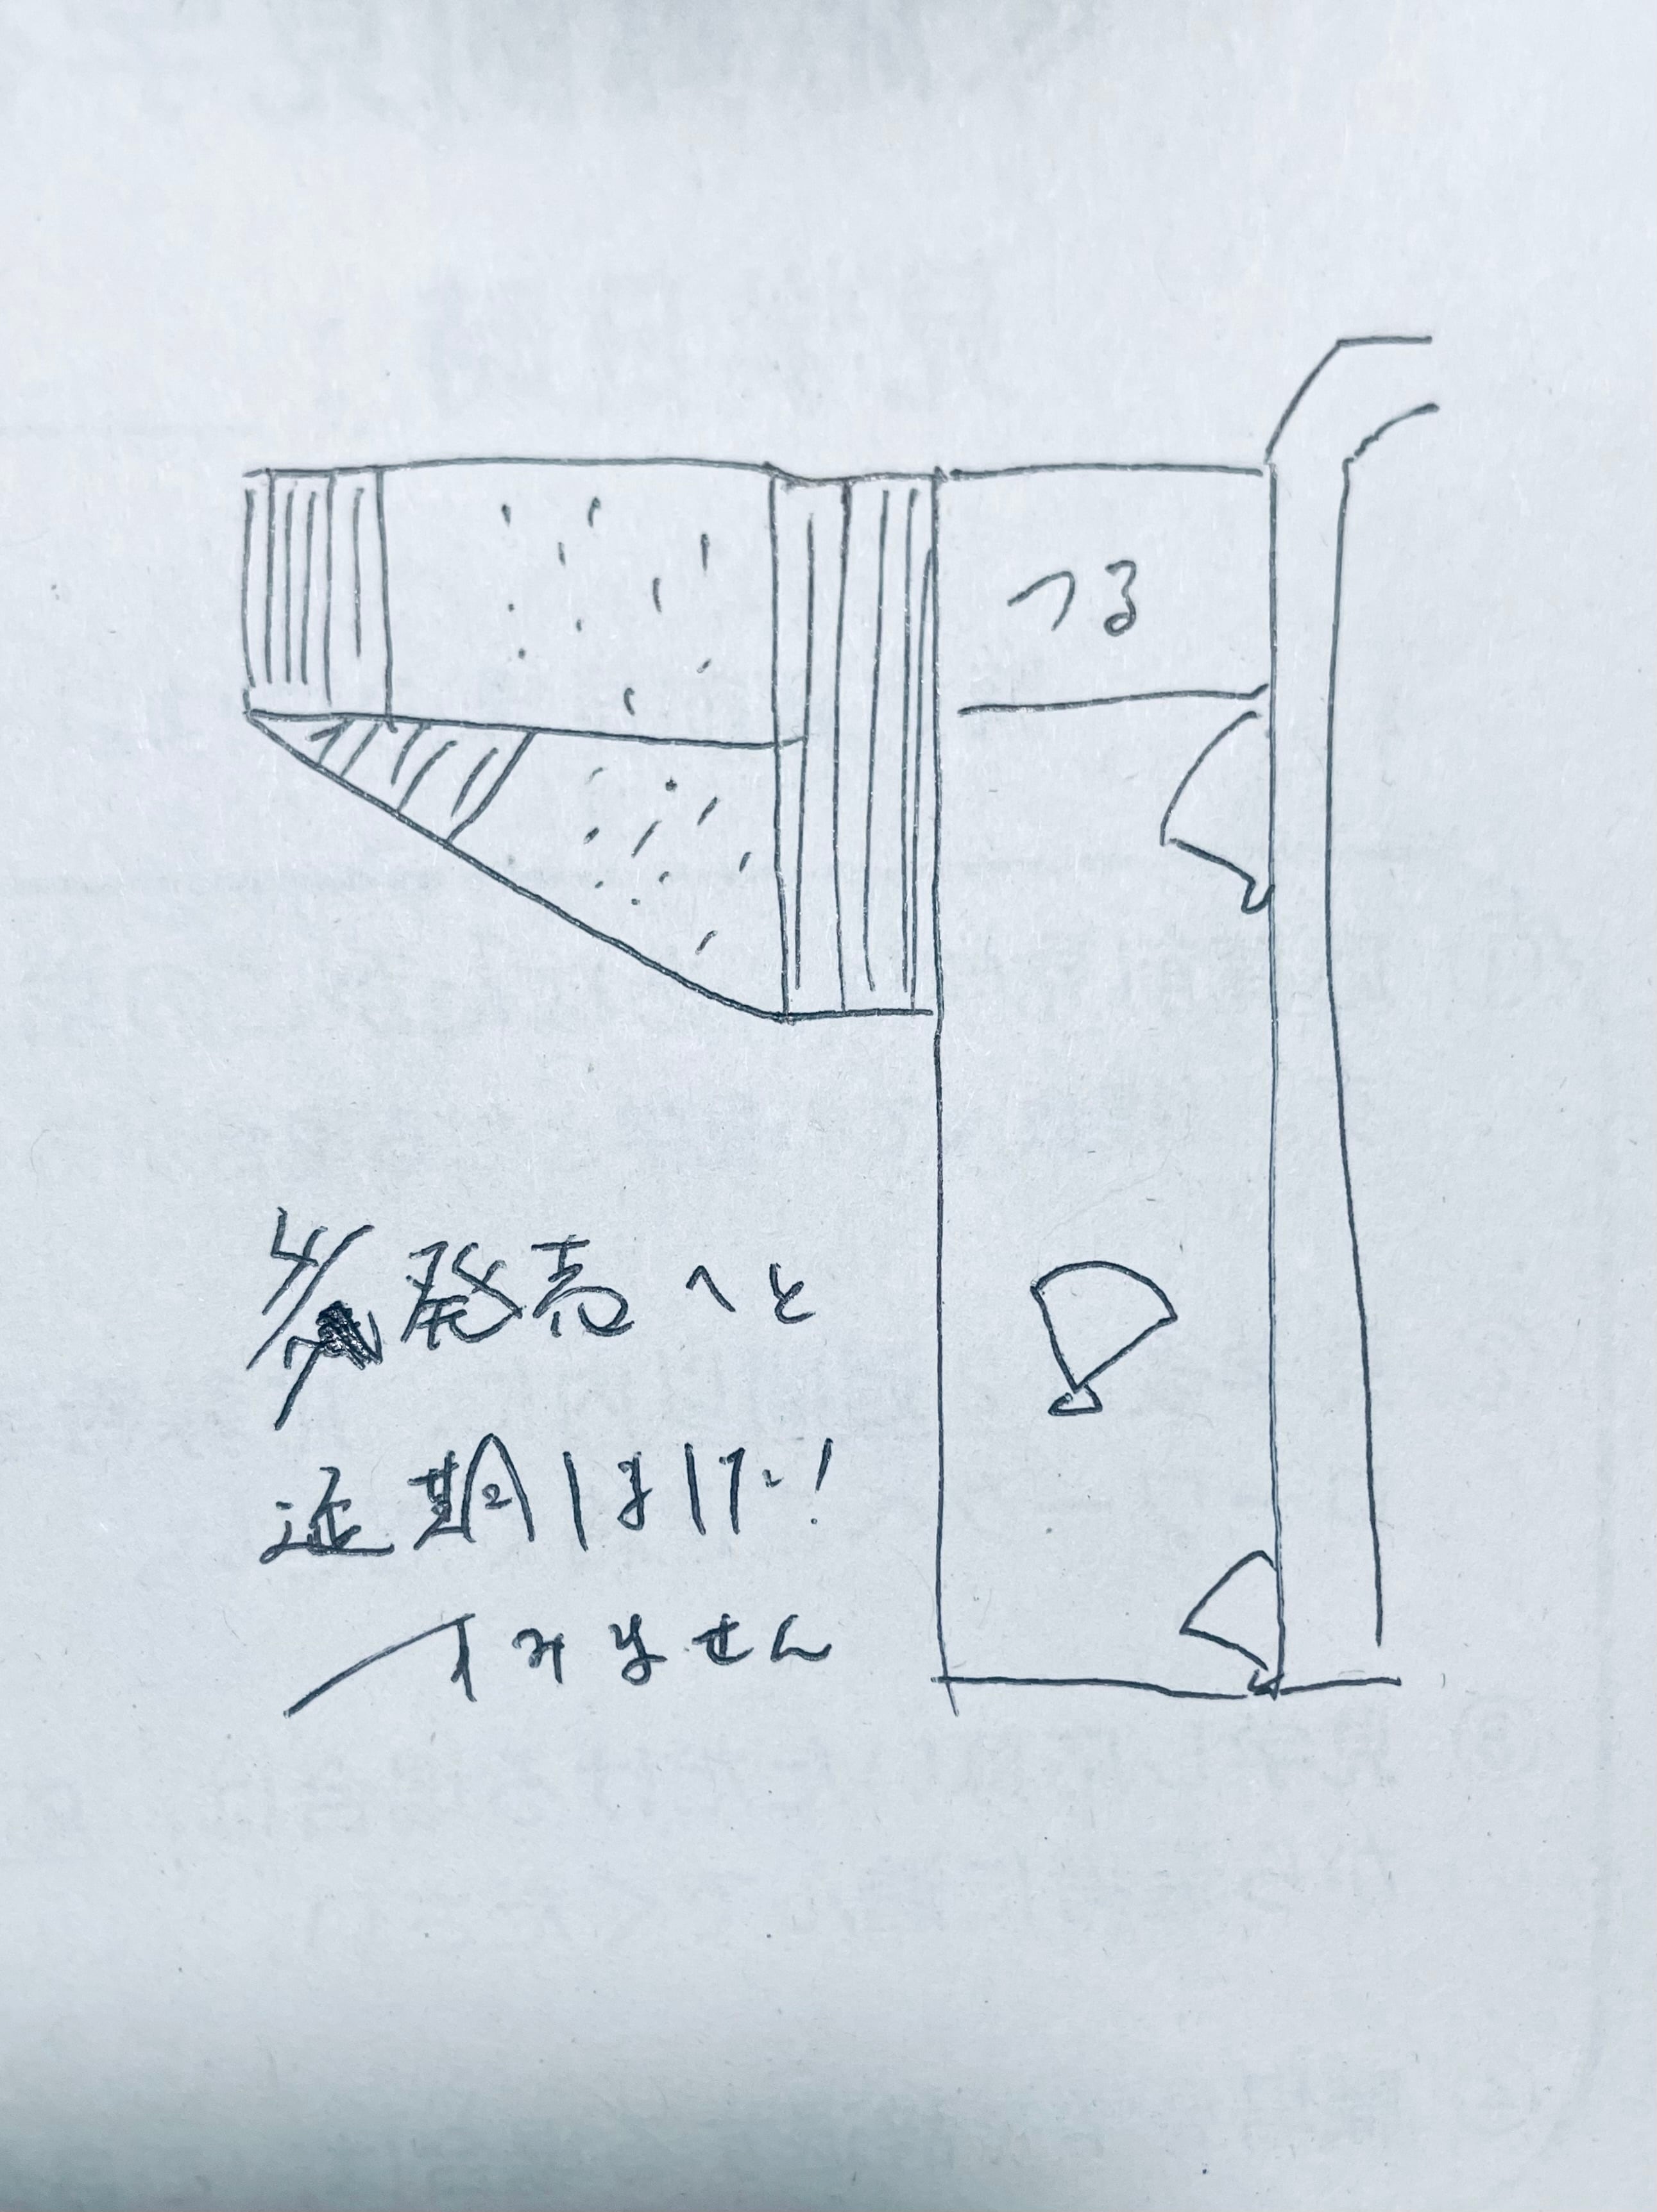 つる
4/7 発売へと
延期しました!
すみません